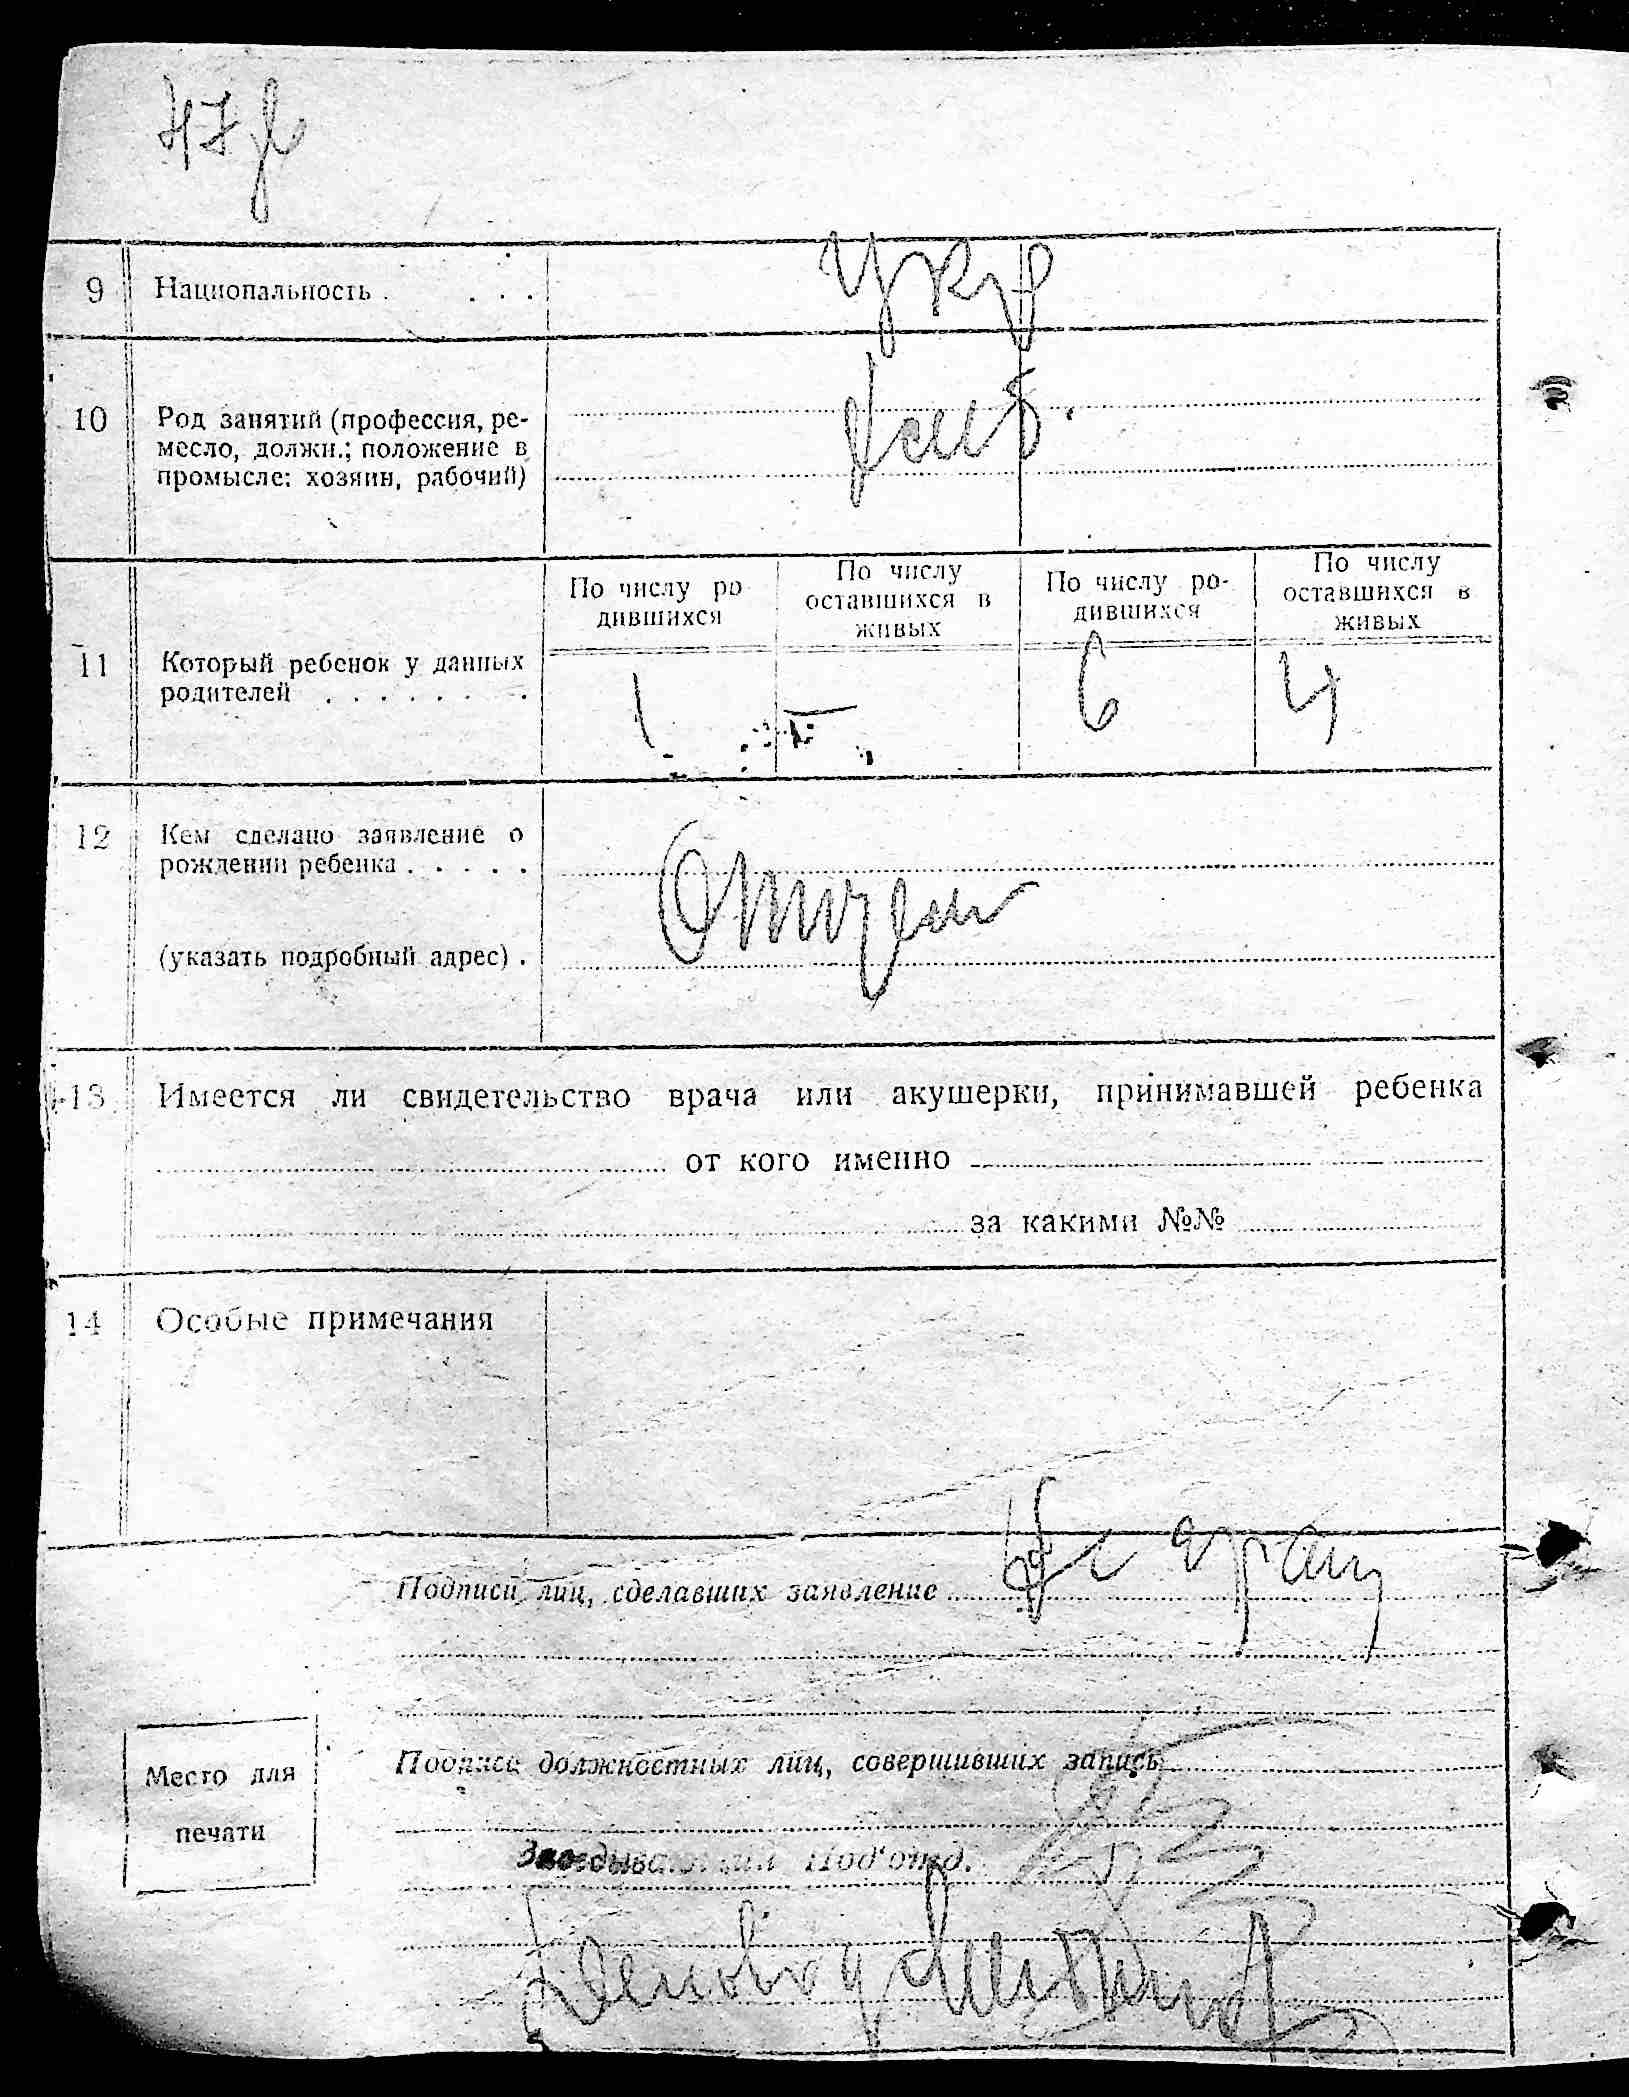 9 Национальность . . . . укр
10 Род занятий (профессия, ре-
месло, должн.; положение в
промысле: хозяин, рабочий)
По числу ро-
дившихся
По числу
оставшихся в
живых
По числу ро-
дившихся
По числу
оставшихся в
живых
11 Который ребенок у данных
родителей . . . . . . .
1 — 6 4
12 Кем сделано заявление о
рождении ребенка . . . . .
Отцем
(указать подробный адрес) .
13 Имеется ли свидетельство врача или акушерки, принимавшей ребенка
от кого именно
за какими №№
14 Особые примечания
Подписи лиц, сделавших заявление
Место для
печати
Подписи должностных лиц, совершивших запись
Заведывающий Под'отд.